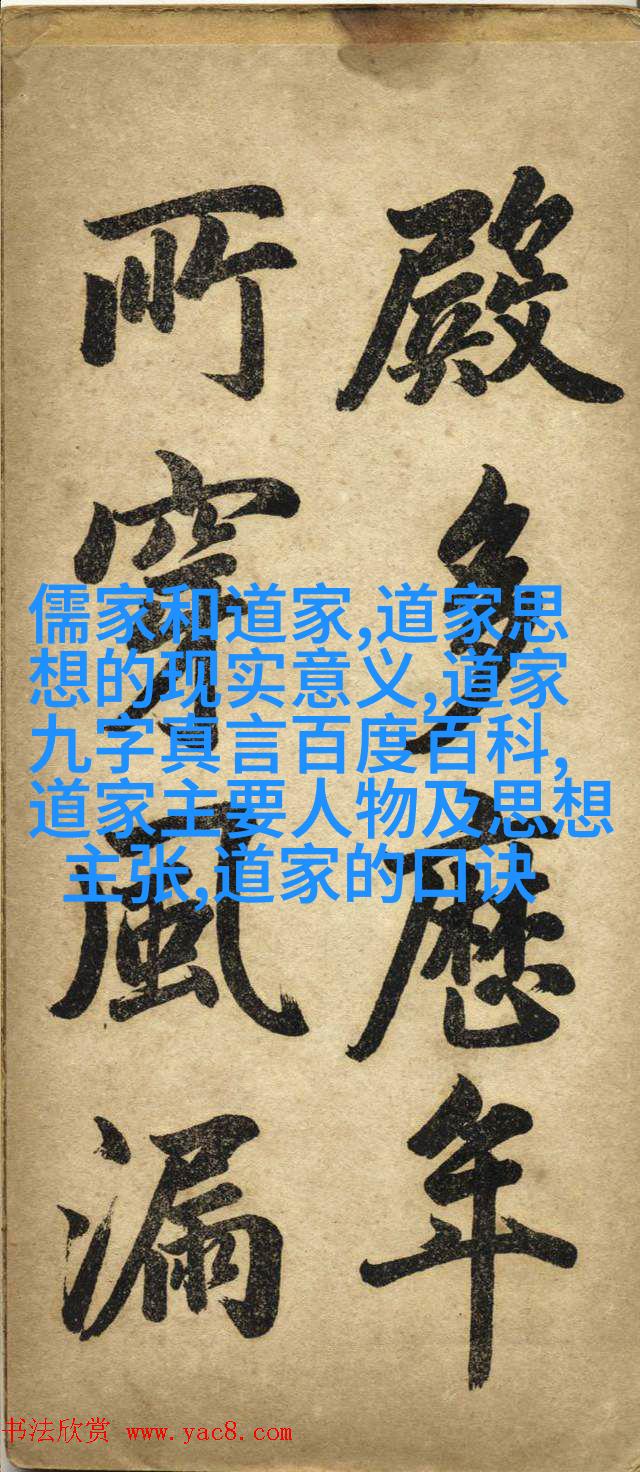 殿多歷年
所穿風漏
儒家和道家,道家思
想的现实意义,道家
九字真言百度百科,
道家主要人物及思想
主张,道家的口诀
书法欣赏 www.yac8.com